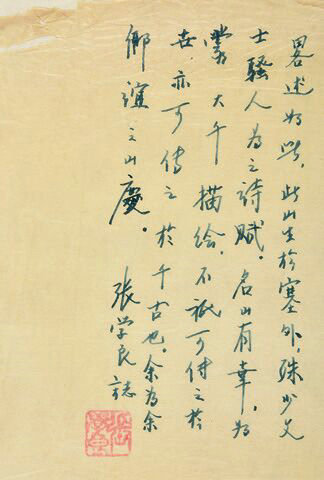 畧述如此，此山生於塞外，殊少文
士騷人為之詩賦。名山有幸，為
蒙大千描绘，不祇可付之於
世，亦可传之於千古也。余為余
鄉誼之山慶。
张学良誌